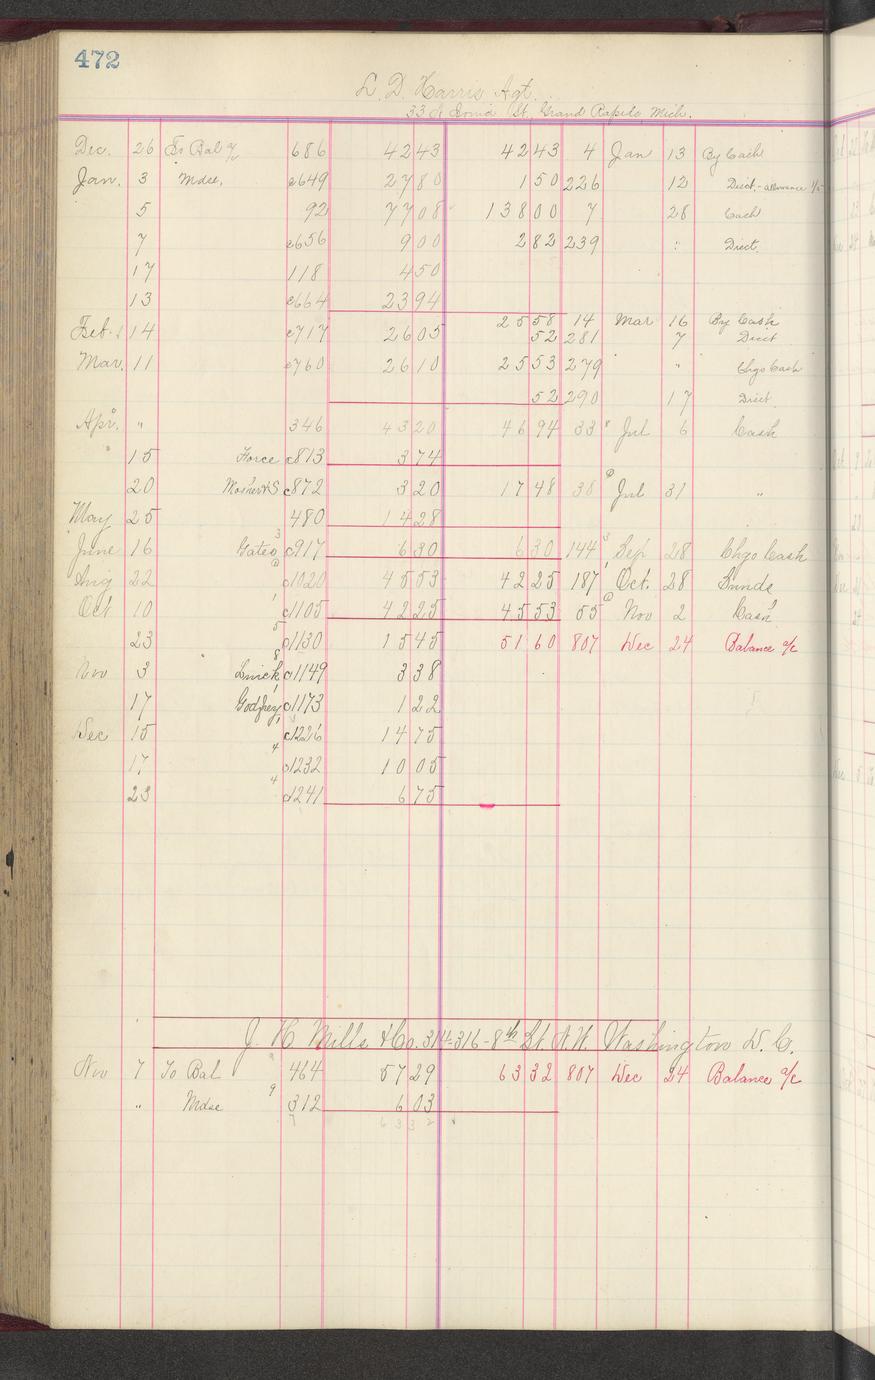 472
L. D. Harris Agt.
33 N Ionia St. Grand Rapids Mich.
Dec. 26 To Bal 686 42 43 42 43 4 Jan 13 By Cash
Jan. 3 Mdse. c649 27 80 1 50 226 12 Disct. - allowance
5 92 77 08 138 00 7 28 Cash
7 c656 9 00 2 82 239 " Disct.
17 118 4 50
13 c664 23 94
25 58 14 Mar 16 By Cash
Feb. 14 c717 26 05 52 281 7 Disct
Mar. 11 c760 26 10 25 53 279 " Chgo Cash
52 290 17 Disct.
Apr. " 346 43 20 46 94 33 Jul 6 Cash
15 Force c813 3 74
20 c872 3 20 17 48 38 Jul 31 "
May 25 480 14 28
June 16 Gates c917 6 30 6 30 144 Sep 28 Chgo Cash
Aug 22 c1020 45 53 42 25 187 Oct. 28 Sunds
Oct 10 c1105 42 25 45 53 55 Nov 2 Cash
23 c1130 15 45 51 60 807 Dec 24 Balance a/c
Nov 3 c1149 3 38
17 Godfrey c1173 1 22
Dec 15 c1226 14 75
17 c1232 10 05
23 c1241 6 75
J. H Mills & Co. 314-316-8th St N.W. Washington D.C.
Nov 7 To Bal 464 57 29 63 32 807 Dec 24 Balance a/c
" Mdse 312 6 03
7 63 32